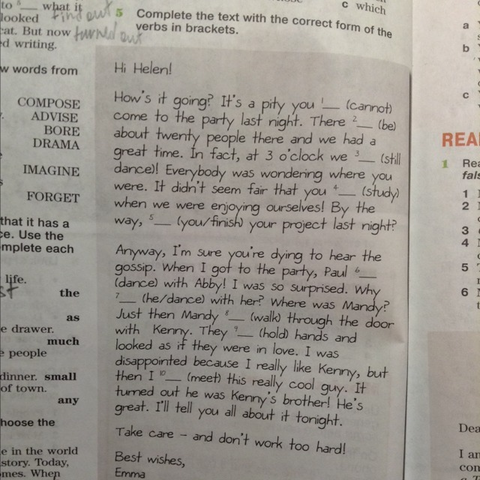 to ___ what it
looked find out
cat. But now turned out
ed writing.
w words from
COMPOSE
ADVISE
BORE
DRAMA
IMAGINE
FORGET
that it has a
ce. Use the
mplete each
life.
the
as
e drawer.
much
e people
dinner. small
of town.
any
hoose the
e in the world
story. Today,
omes. When
5 Complete the text with the correct form of the
verbs in brackets.
Hi Helen!
How's it going? It's a pity you 1___ (cannot)
come to the party last night. There 2___ (be)
about twenty people there and we had a
great time. In fact, at 3 o'clock we 3___ (still
dance)! Everybody was wondering where you
were. It didn't seem fair that you 4___ (study)
when we were enjoying ourselves! By the
way, 5___ (you/finish) your project last night?
Anyway, I'm sure you're dying to hear the
gossip. When I got to the party, Paul 6___
(dance) with Abby! I was so surprised. Why
7___ (he/dance) with her? Where was Mandy?
Just then Mandy 8___ (walk) through the door
with Kenny. They 9___ (hold) hands and
looked as if they were in love. I was
disappointed because I really like Kenny, but
then I 10___ (meet) this really cool guy. It
turned out he was Kenny's brother! He's
great. I'll tell you all about it tonight.
Take care – and don't work too hard!
Best wishes,
Emma
c which
a
b
c
REA
1 Rea
fals
1
2
3
4
5
6
Dea
I an
con